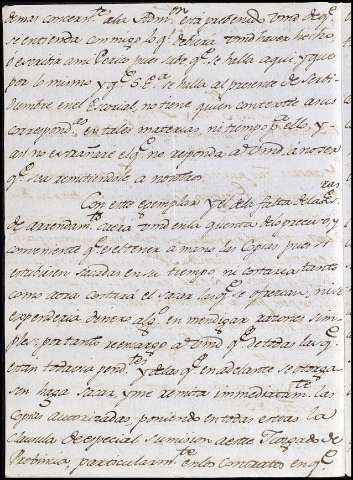 demas concerns.te a la Adm.on está prebenido Vmd de q.e
se entienda conmigo lo q.e debiera Vmd haver hecho
o escribir ami Percio, pues sabe q.e se halla aqui, y que
por lo mismo y q.e S.E.a se halla al presente de Serbi-
dumbre en el Escorial, no tiene quien conteste a sus
correspond.as en tales materias, ni tiempo p.a ello, y
asi no estrañare el q.e no responda a Vmd. á no ser
q.e sea remitiendole a nosotros.
Con este exemplar, y el de la falta de las es.ras
de arrendam.to caerá Vmd en la quenta de lo preciso, y
conveniente q.e es el tener a mano las Copias pues si
estubiesen sacadas en su tiempo, ni costaria tanto
como aora costará el sacar las q.e se ofrecen, ni se
expenderia dinero alg.o en mendigar razones sim-
ples: por tanto reencargo a Vmd q.e de todas las q.e
estan todavia pend.tes y de las q.e en adelante se otorga-
sen haga sacar, y me remita inmediatam.te las
Copias autorizadas, poniendo en todas estas la
Clausula de especial sumision a este Juzgado de
Probincia, particularm.te en los Contratos en q.e